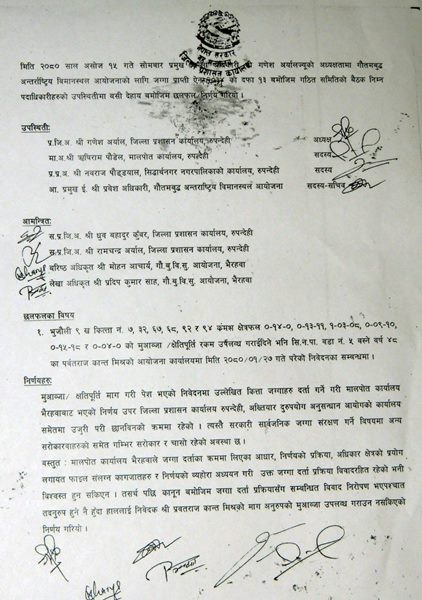 मिति २०८० साल असोज १५ गते सोमबार प्रमुख गणेश अर्यालज्यूको अध्यक्षतामा गौतमबुद्ध
अन्तर्राष्ट्रिय विमानस्थल आयोजनाको लागि जग्गा प्राप्ती ऐन को दफा १३ बमोजिम गठित समितिको बैठक निम्न
पदाधिकारीहरुको उपस्थितीमा बसी देहाय बमोजिम छलफल निर्णय गरियो ।
उपस्थिती:
प्र.जि.अ. श्री गणेश अर्याल, जिल्ला प्रशासन कार्यालय, रुपन्देही अध्यक्ष
मा.अ.श्री ऋषिराम पौडेल, मालपोत कार्यालय, रुपन्देही सदस्य
प्र.प्र.अ. श्री नवराज पौड्याल, सिद्धार्थनगर नगरपालिकाको कार्यालय, रुपन्देही सदस्य
आ. प्रमुख ई. श्री प्रवेश अधिकारी, गौतमबुद्ध अन्तर्राष्ट्रिय विमानस्थल आयोजना सदस्य-सचिव
आमन्त्रित:
स.प्र.जि.अ. श्री ध्रुव बहादुर कुँवर, जिल्ला प्रशासन कार्यालय, रुपन्देही
स.प्र.जि.अ. श्री रामचन्द्र अर्याल, जिल्ला प्रशासन कार्यालय, रुपन्देही
बरिष्ठ अधिकृत श्री मोहन आचार्य, गौ.बु.वि.सु. आयोजना, भैरहवा
लेखा अधिकृत श्री प्रदिप कुमार साह, गौ.बु.वि.सु. आयोजना, भैरहवा
छलफलका विषय
१. भुजौली ९ ख कित्ता नं. ७, ३२, ६७, ६८, ९२ र ९४ क्रमश क्षेत्रफल ०-१४-०, ०-१३-११, १-०३-०८, ०-०९-१०,
०-१५-१८ र ०-०४-० को मुआब्जा /क्षतिपूर्ति रकम उपलब्ध गराईदिने भनि सि.न.पा. वडा नं. ५ बस्ने वर्ष ४८
का पर्वतराज कान्त मिश्रको आयोजना कार्यालयमा मिति २०८०/०१/२७ गते परेको निवेदनका सम्बन्धमा ।
निर्णयहरु:
मुआब्जा/ क्षतिपूर्ति माग गरी पेश भएको निवेदनमा उल्लेखित कित्ता जग्गाहरु दर्ता गर्ने गरी मालपोत कार्यालय
भैरहवाबाट भएको निर्णय उपर जिल्ला प्रशासन कार्यालय रुपन्देही, अख्तियार दुरुपयोग अनुसन्धान आयोगको कार्यालय
समेतमा उजुरी परी छानविनको क्रममा रहेको । त्यस्तै सरकारी सार्वजनिक जग्गा संरक्षण गर्ने विषयमा अन्य
सरोकारवालाहरुको समेत गम्भिर सरोकार र चासो रहेको अवस्था छ ।
प्रस्तुत : मालपोत कार्यालय भैरहवाले जग्गा दर्ताका क्रममा लिएका आधार, निर्णयको प्रक्रिया, अधिकार क्षेत्रको प्रयोग
लगायत फाइल संलग्न कागजातहरु र निर्णयको व्यहोरा अध्ययन गरी उक्त जग्गा दर्ता प्रक्रिया विवादरहित रहेको भनी
विश्वस्त हुन सकिएन । तसर्थ पछि कानून बमोजिम जग्गा दर्ता प्रक्रियासँग सम्बन्धित विवाद निरोपण भएपश्चात
तदनुरुप हुने नै हुँदा हाललाई निवेदक श्री प्रवतराज कान्त मिश्रको माग अनुरुपको मुआब्जा उपलब्ध गराउन नसकिएको
निर्णय गरियो ।